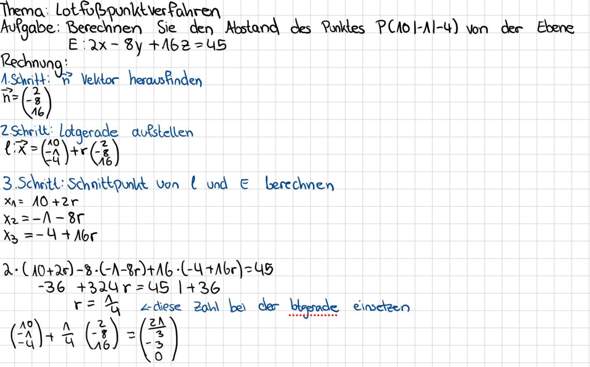 Thema: Lotfußpunktverfahren
Aufgabe: Berechnen Sie den Abstand des Punktes P(10|-1|-4) von der Ebene
E: 2x - 8y + 16z = 45
Rechnung:
1.Schritt: n⃗ Vektor herausfinden
n⃗ = (2 -8 16)
2.Schritt: Lotgerade aufstellen
l: x⃗ = (10 -1 -4) + r (2 -8 16)
3.Schritt: Schnittpunkt von l und E berechnen
x1 = 10 + 2r
x2 = -1 - 8r
x3 = -4 + 16r
2·(10+2r)-8·(-1-8r)+16·(-4+16r)=45
-36 + 324r = 45 | + 36
r = 1/4 <-diese Zahl bei der btgerade einsetzen
(10 -1 -4) + 1/4 (2 -8 16) = (21/3 -3 0)